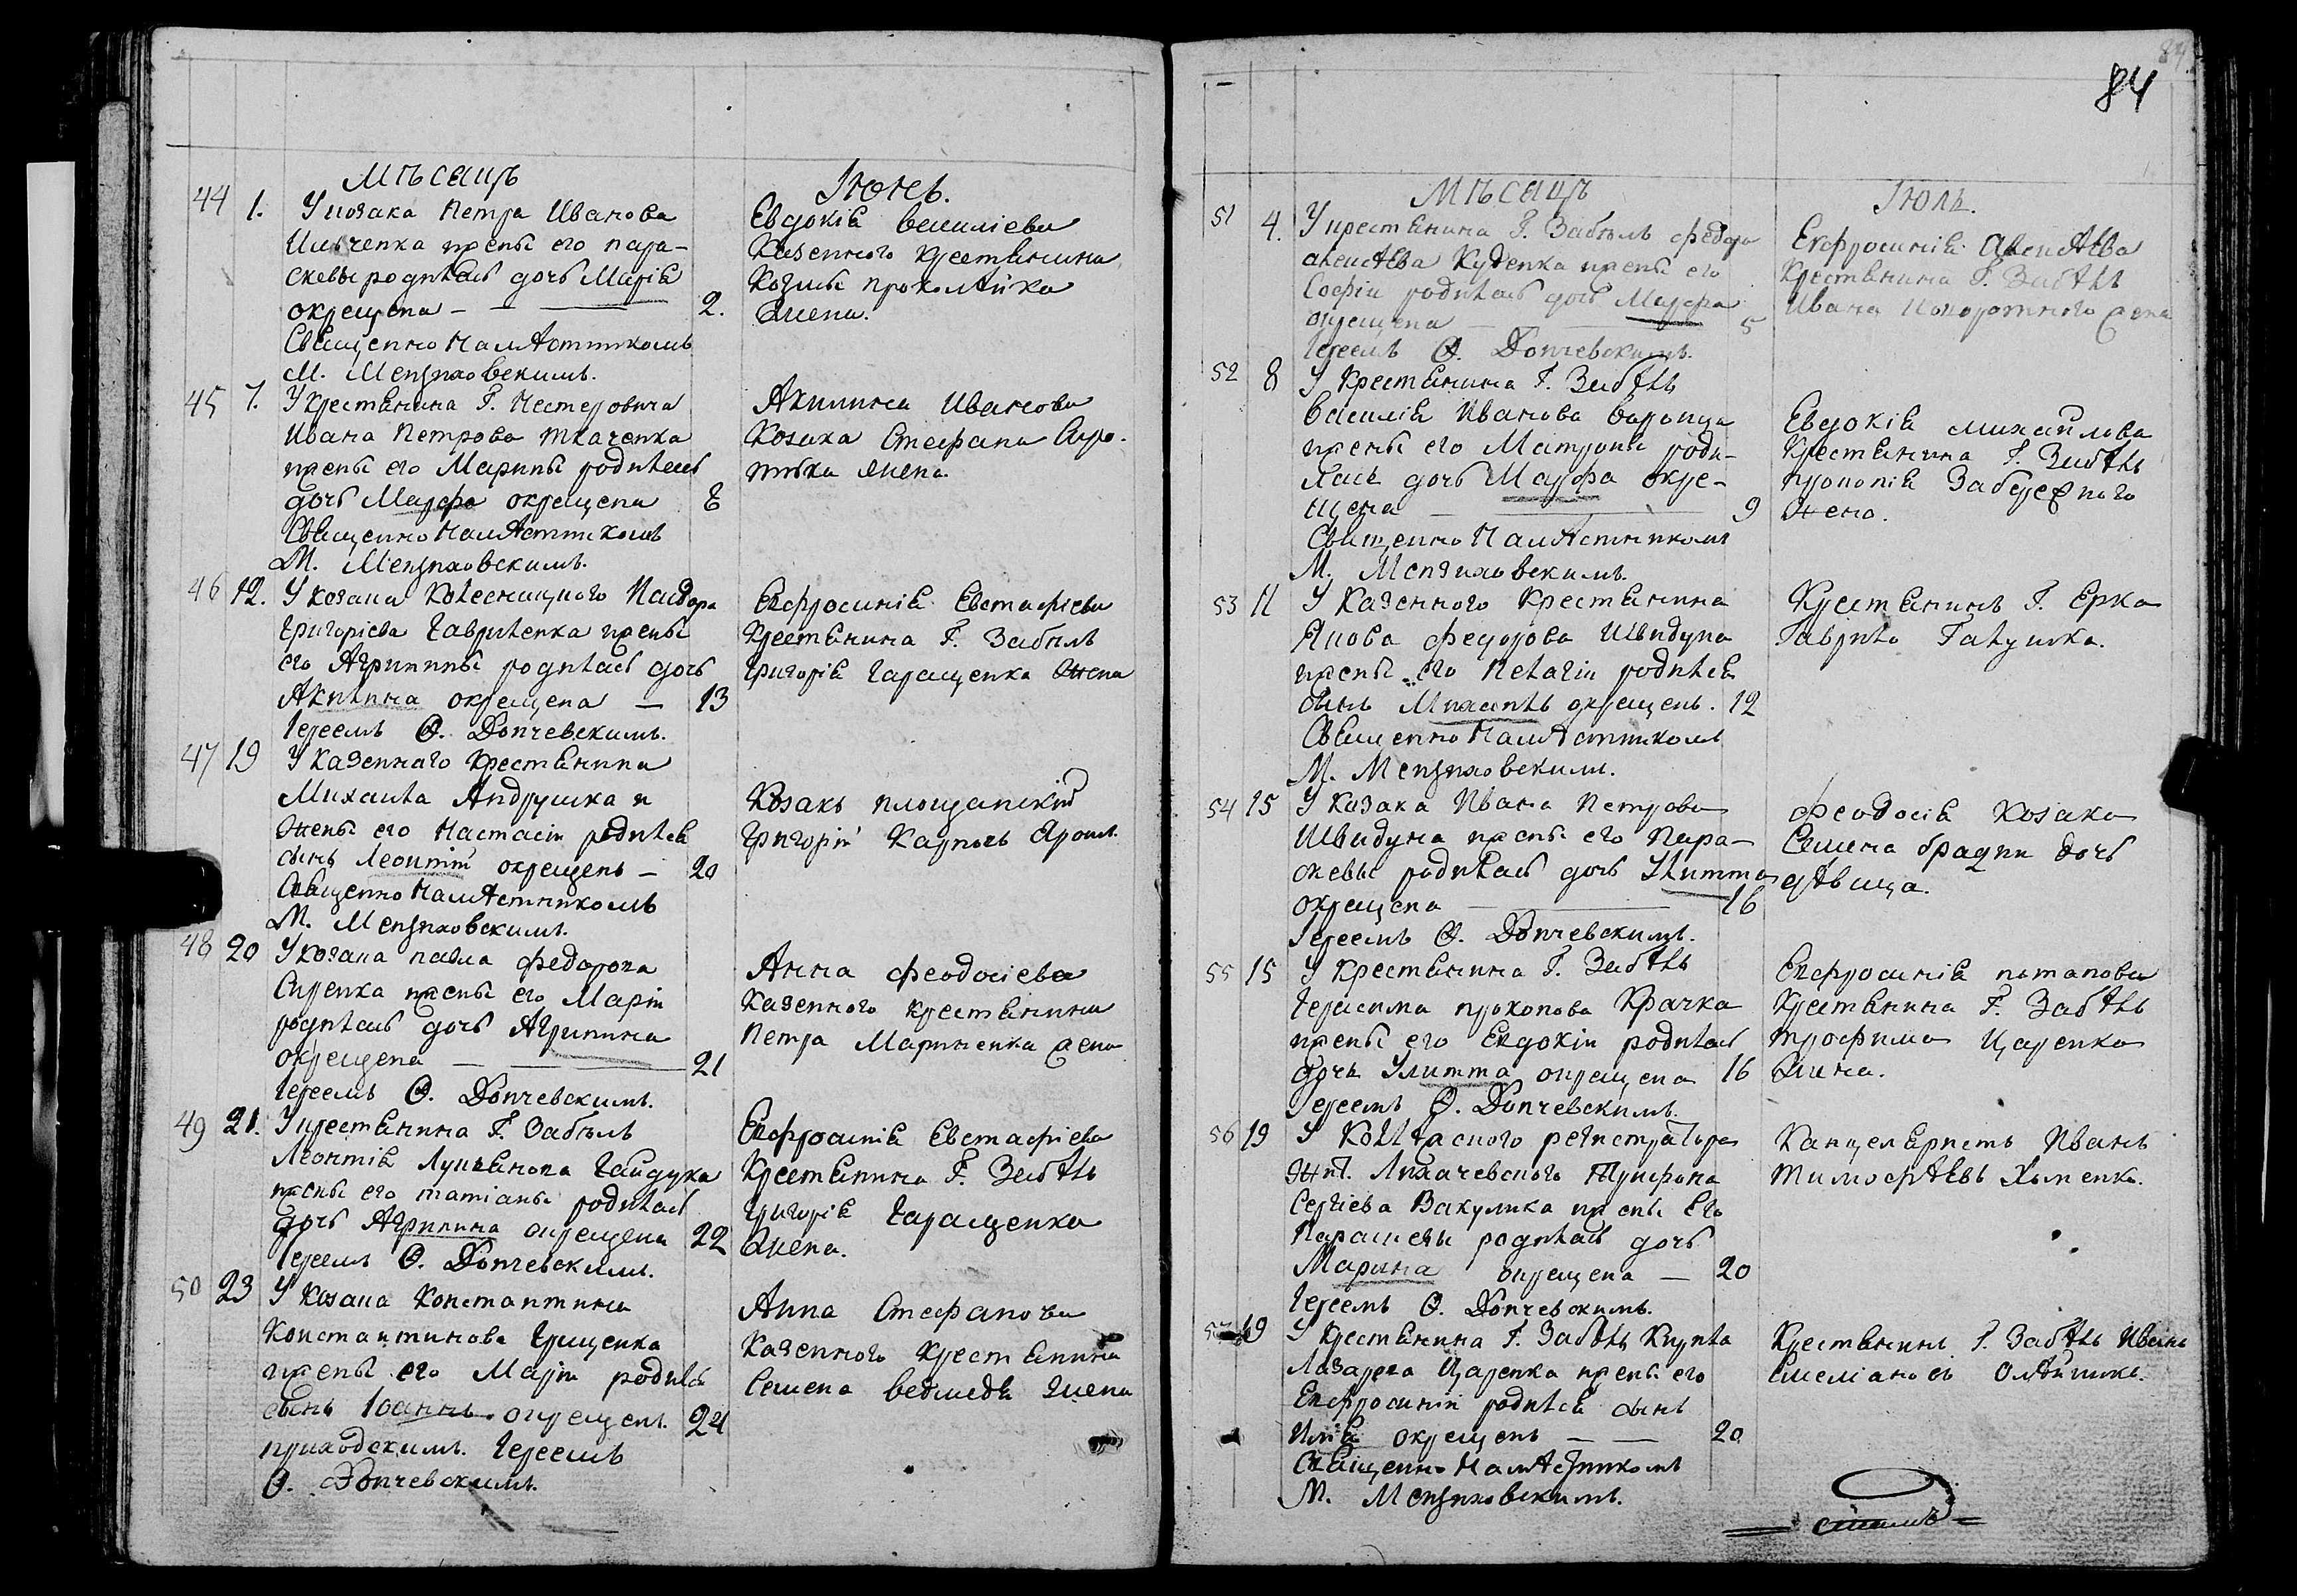 84
84
Мѣсацъ Іюнь.
44 1. У козака Петра Иванова
Ильченка и жены его Пара-
скевы родилась дочь Марія
окрещена — 2.
Священно Намѣстникомъ
М. Мензиховскимъ.
Евдокія Василіева
Казеннаго крестянина
Козмы Прокопѣйка
жена.
45 7. У крестянина Г. Нестеровича
Ивана Петрова Ткаченка
и жены его Марины родилась
дочь Марфа окрещена 8
Священно Намѣстникомъ
М. Мензиховскимъ.
Акилина Иванова
Козака Стефана Сиро-
тюка жена.
46 12. У козака Исидора
Григоріева Гавриленка и жены
его Агрипины родилась дочь
Акилина окрещена — 13
Іереемъ Ѳ. Дончевскимъ.
Евфросинія Евстафіева
Крестянина Г. Забѣлъ
Григорія Гаращенка жена
47 19 У казеннаго крестянина
Михаила Андрушка и
жены его Настасіи родился
сынъ Леонтій окрещенъ — 20
Священно Намѣстникомъ
М. Мензиховскимъ.
Козакъ площанскій
Григорій Карповъ Ярош.
48 20 У козака Павла Федорова
и жены его Маріи
родилась дочь Агрипина
окрещена — 21
Іереемъ Ѳ. Дончевскимъ.
Анна Феодосіева
Казенного крестянина
Петра Мариненка жена
49 21. У крестянина Г. Забѣлъ
Леонтія Лукянова Гайдука
и жены его Татіаны родилась
дочь Агрипина окрещена 22
Іереемъ Ѳ. Дончевскимъ.
Евфросинія Евстафіева
Крестянина Г. Забѣлъ
Григорія Гаращенка
жена.
50 23 У козака Константина
Константинова Грищенка
и жены его Маріи родился
сынъ Іоаннъ окрещенъ. 24
приходскимъ Іереемъ
Ѳ. Дончевскимъ.
Анна Стефанова
Казенного крестянина
Семена Ведмедя жена
Мѣсацъ Іюль.
51 4. У крестянина Г. Забѣлъ Федора
Алексѣева и жены его
Софіи родилась дочь Марфа
окрещена — 5
Іереемъ Ѳ. Дончевскимъ.
Евфросинія Алексѣева
Крестянина Г. Забѣлъ
Ивана жена
52 8 У крестянина Г. Забѣлъ
Василія Иванова
и жены его Матроны роди-
лась дочь Марфа окре-
щена — 9
Священно Намѣстникомъ
М. Мензиховскимъ.
Евдокія Михайлова
Крестянина Г. Забѣлъ
Прокопія Забережного
жена.
53 11 У Казенного Крестянина
Якова Федорова Швидуна
и жены его Пелагіи родился
сынъ Михаилъ окрещенъ. 12
Священно Намѣстникомъ
М. Мензиховскимъ.
Крестянинъ Г. Ерка
Гаврило Галушка.
54 15 У Козака Ивана Петрова
Швидуна и жены его Пара-
скевы родилась дочь Улитта
окрещена — 16
Іереемъ Ѳ. Дончевскимъ.
Феодосія Козака
Семена дочь
дѣвица.
55 15 У крестянина Г. Забѣлъ
Герасима Прокопова Крачка
и жены его Евдокіи родилась
дочь Улитта окрещена 16
Іереемъ Ѳ. Дончевскимъ.
Евфросинія Потапова
Крестянина Г. Забѣлъ
Трофима Царенка
жена.
56 19 У Колежского регистратора
Лихачевского Трифона
Сергіева Вакулика и жены Его
Параскевы родилась дочь
Марина окрещена — 20
Іереемъ Ѳ. Дончевскимъ.
Канцеляристъ Иванъ
Тимофѣевъ Хименко.
57 19 У Крестянина Г. Забѣлъ Кирила
Лазарева Царенка и жены его
Евфросиніи родился сынъ
Илія окрещенъ — 20
Священно Намѣстникомъ
М. Мензиховскимъ.
Крестянинъ Г. Забѣлъ Иванъ
Емеліановъ Олѣйникъ.